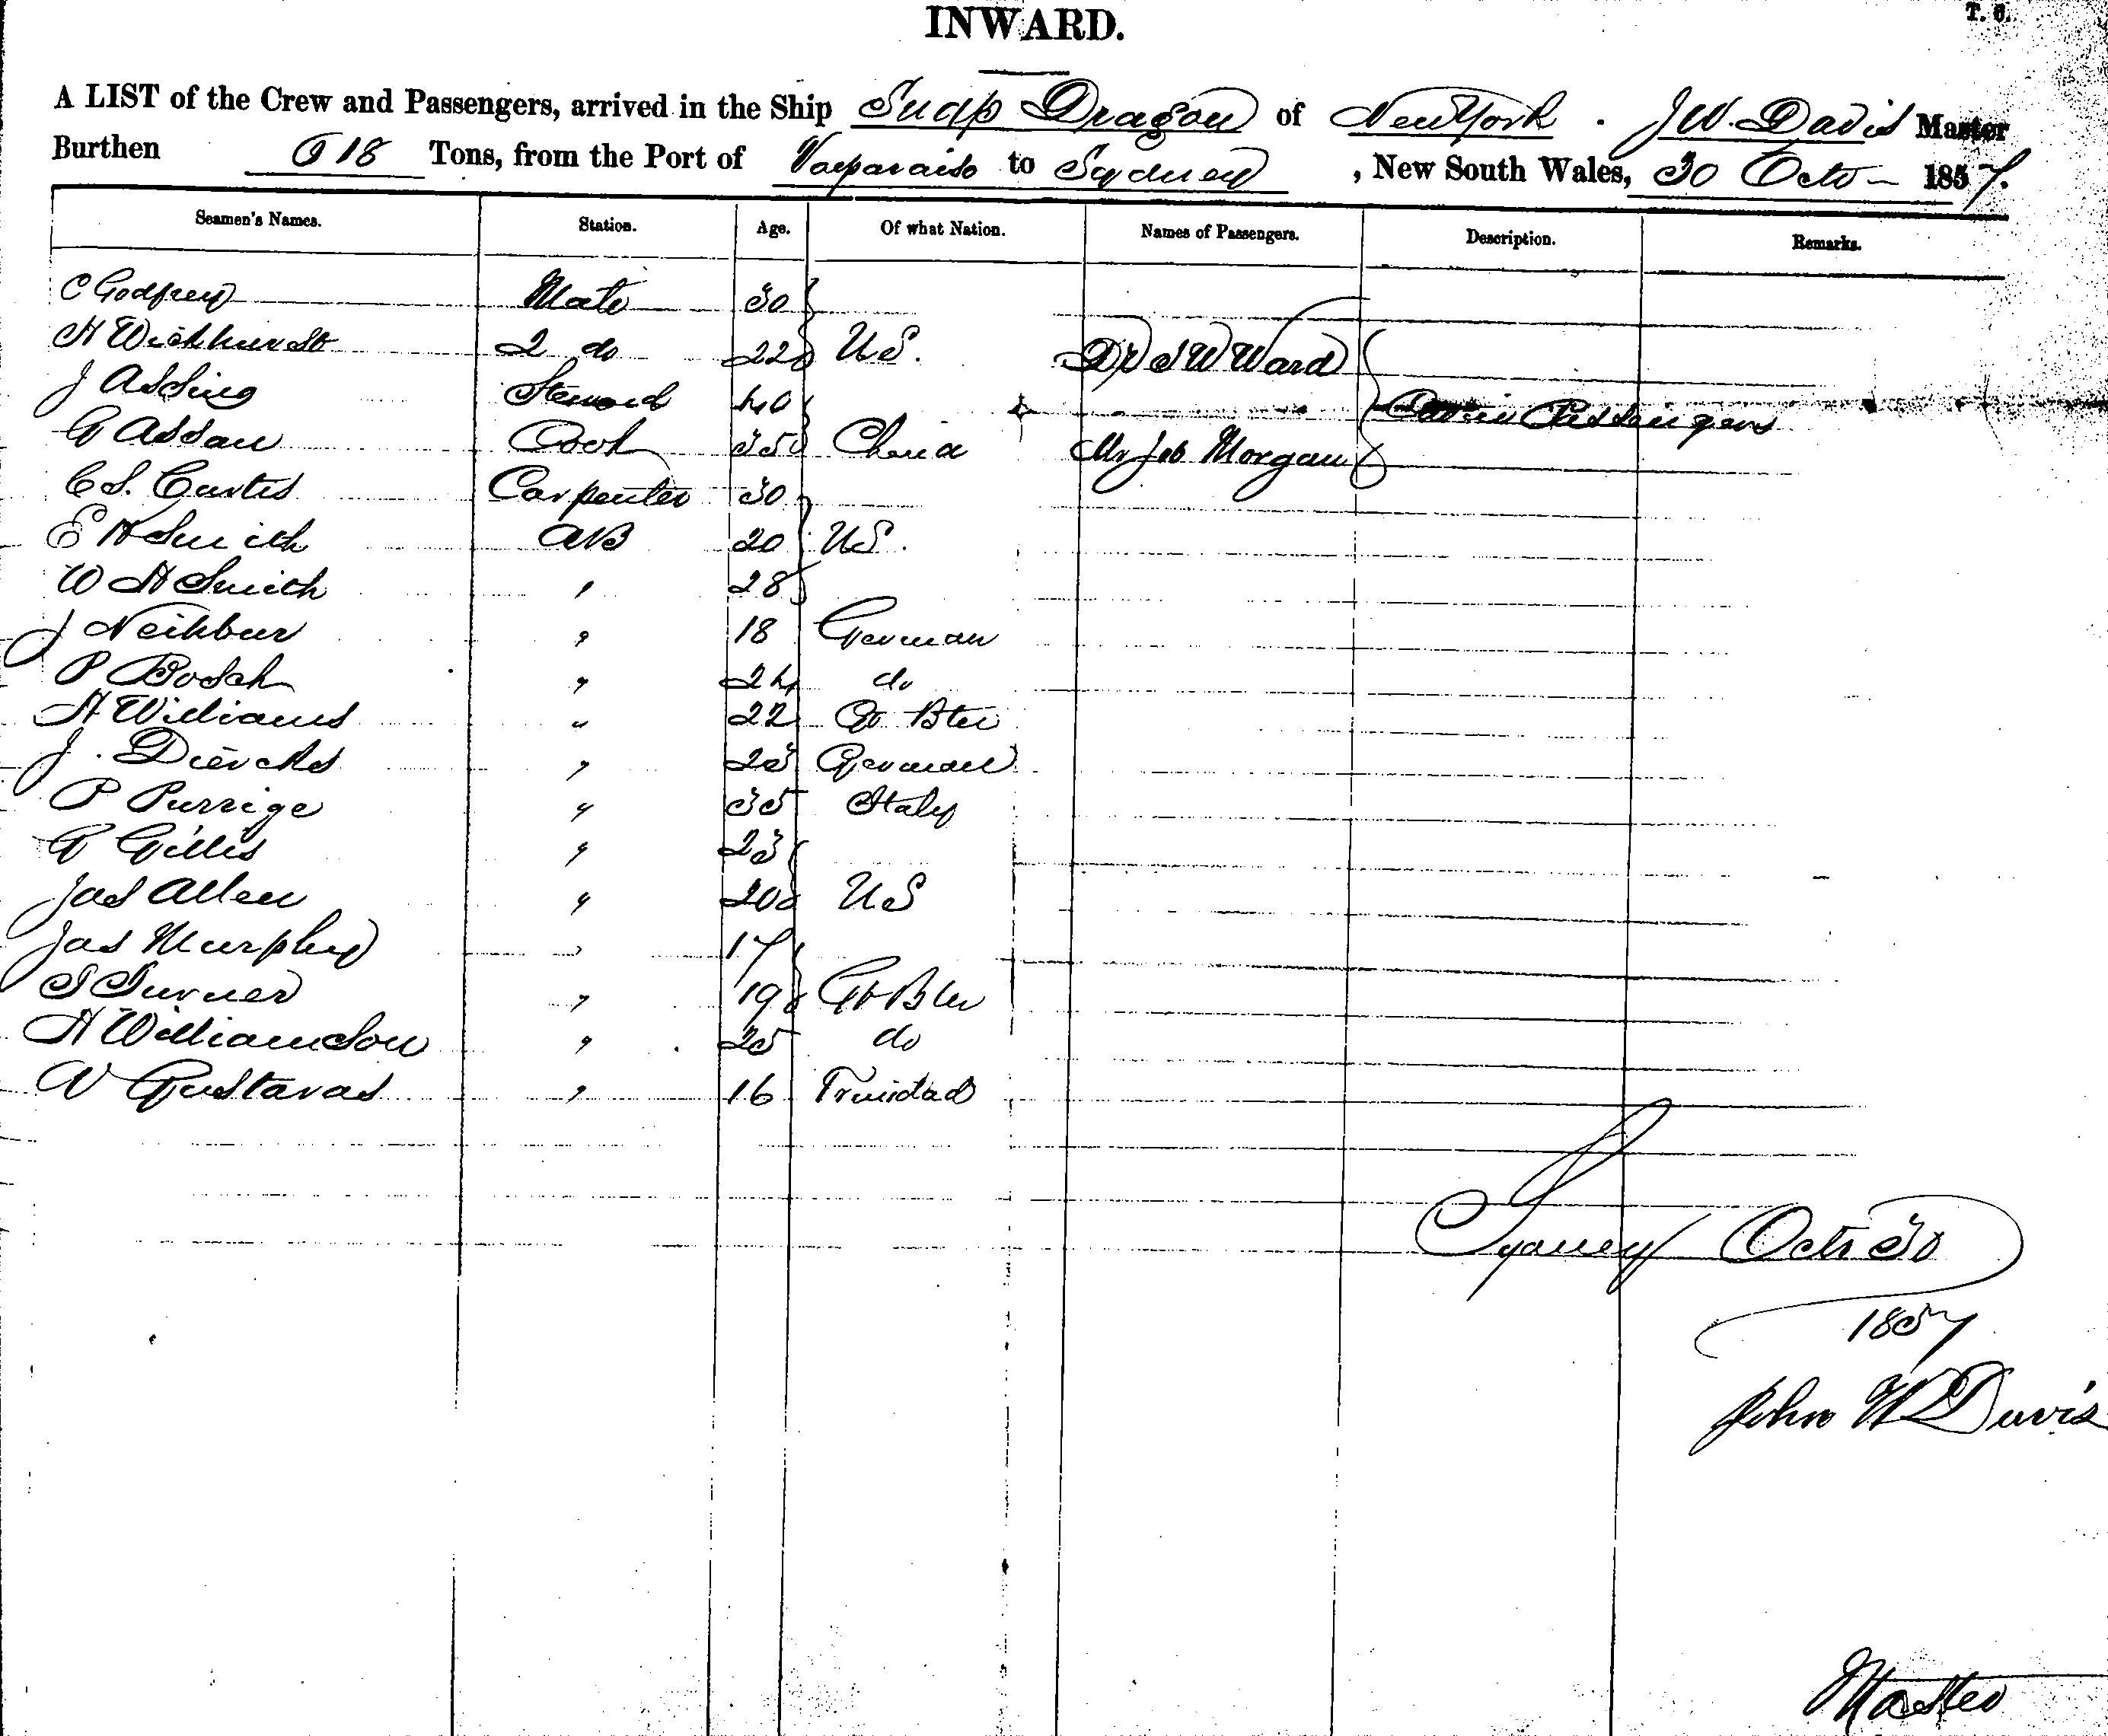 INWARD.
T. 6.
A LIST of the Crew and Passengers, arrived in the Ship Snap Dragon of New York . J W. Davis Master
Burthen 618 Tons, from the Port of Valparaiso to Sydney , New South Wales, 30 Octo - 1857.
Seamen's Names. Station. Age. Of what Nation. Names of Passengers. Description. Remarks.
C Godfrey Mate 30
H Wickhurst 2 do 22 U S. Dr S W Ward
J Assing Steward 40 Cabin Passengers
G Assau Cook 35 China Mr Job Morgan
C S. Curtis Carpenter 30
E H Smith AB 20 U S.
W H Smith " 28
J Neihbur " 18 German
P Bosch " 24 do
H Williams " 22 Gt Btn
J. Diercks " 23 German
P Purrige " 35 Italy
G Gillis " 23
Jas Allen " 20 U S
Jas Murphy " 17
S Turner " 19 Gt Btn
H Williamson " 25 do
W Gustavas " 16 Trinidad
Sydney Octr 30
1857
John W Davis
Master